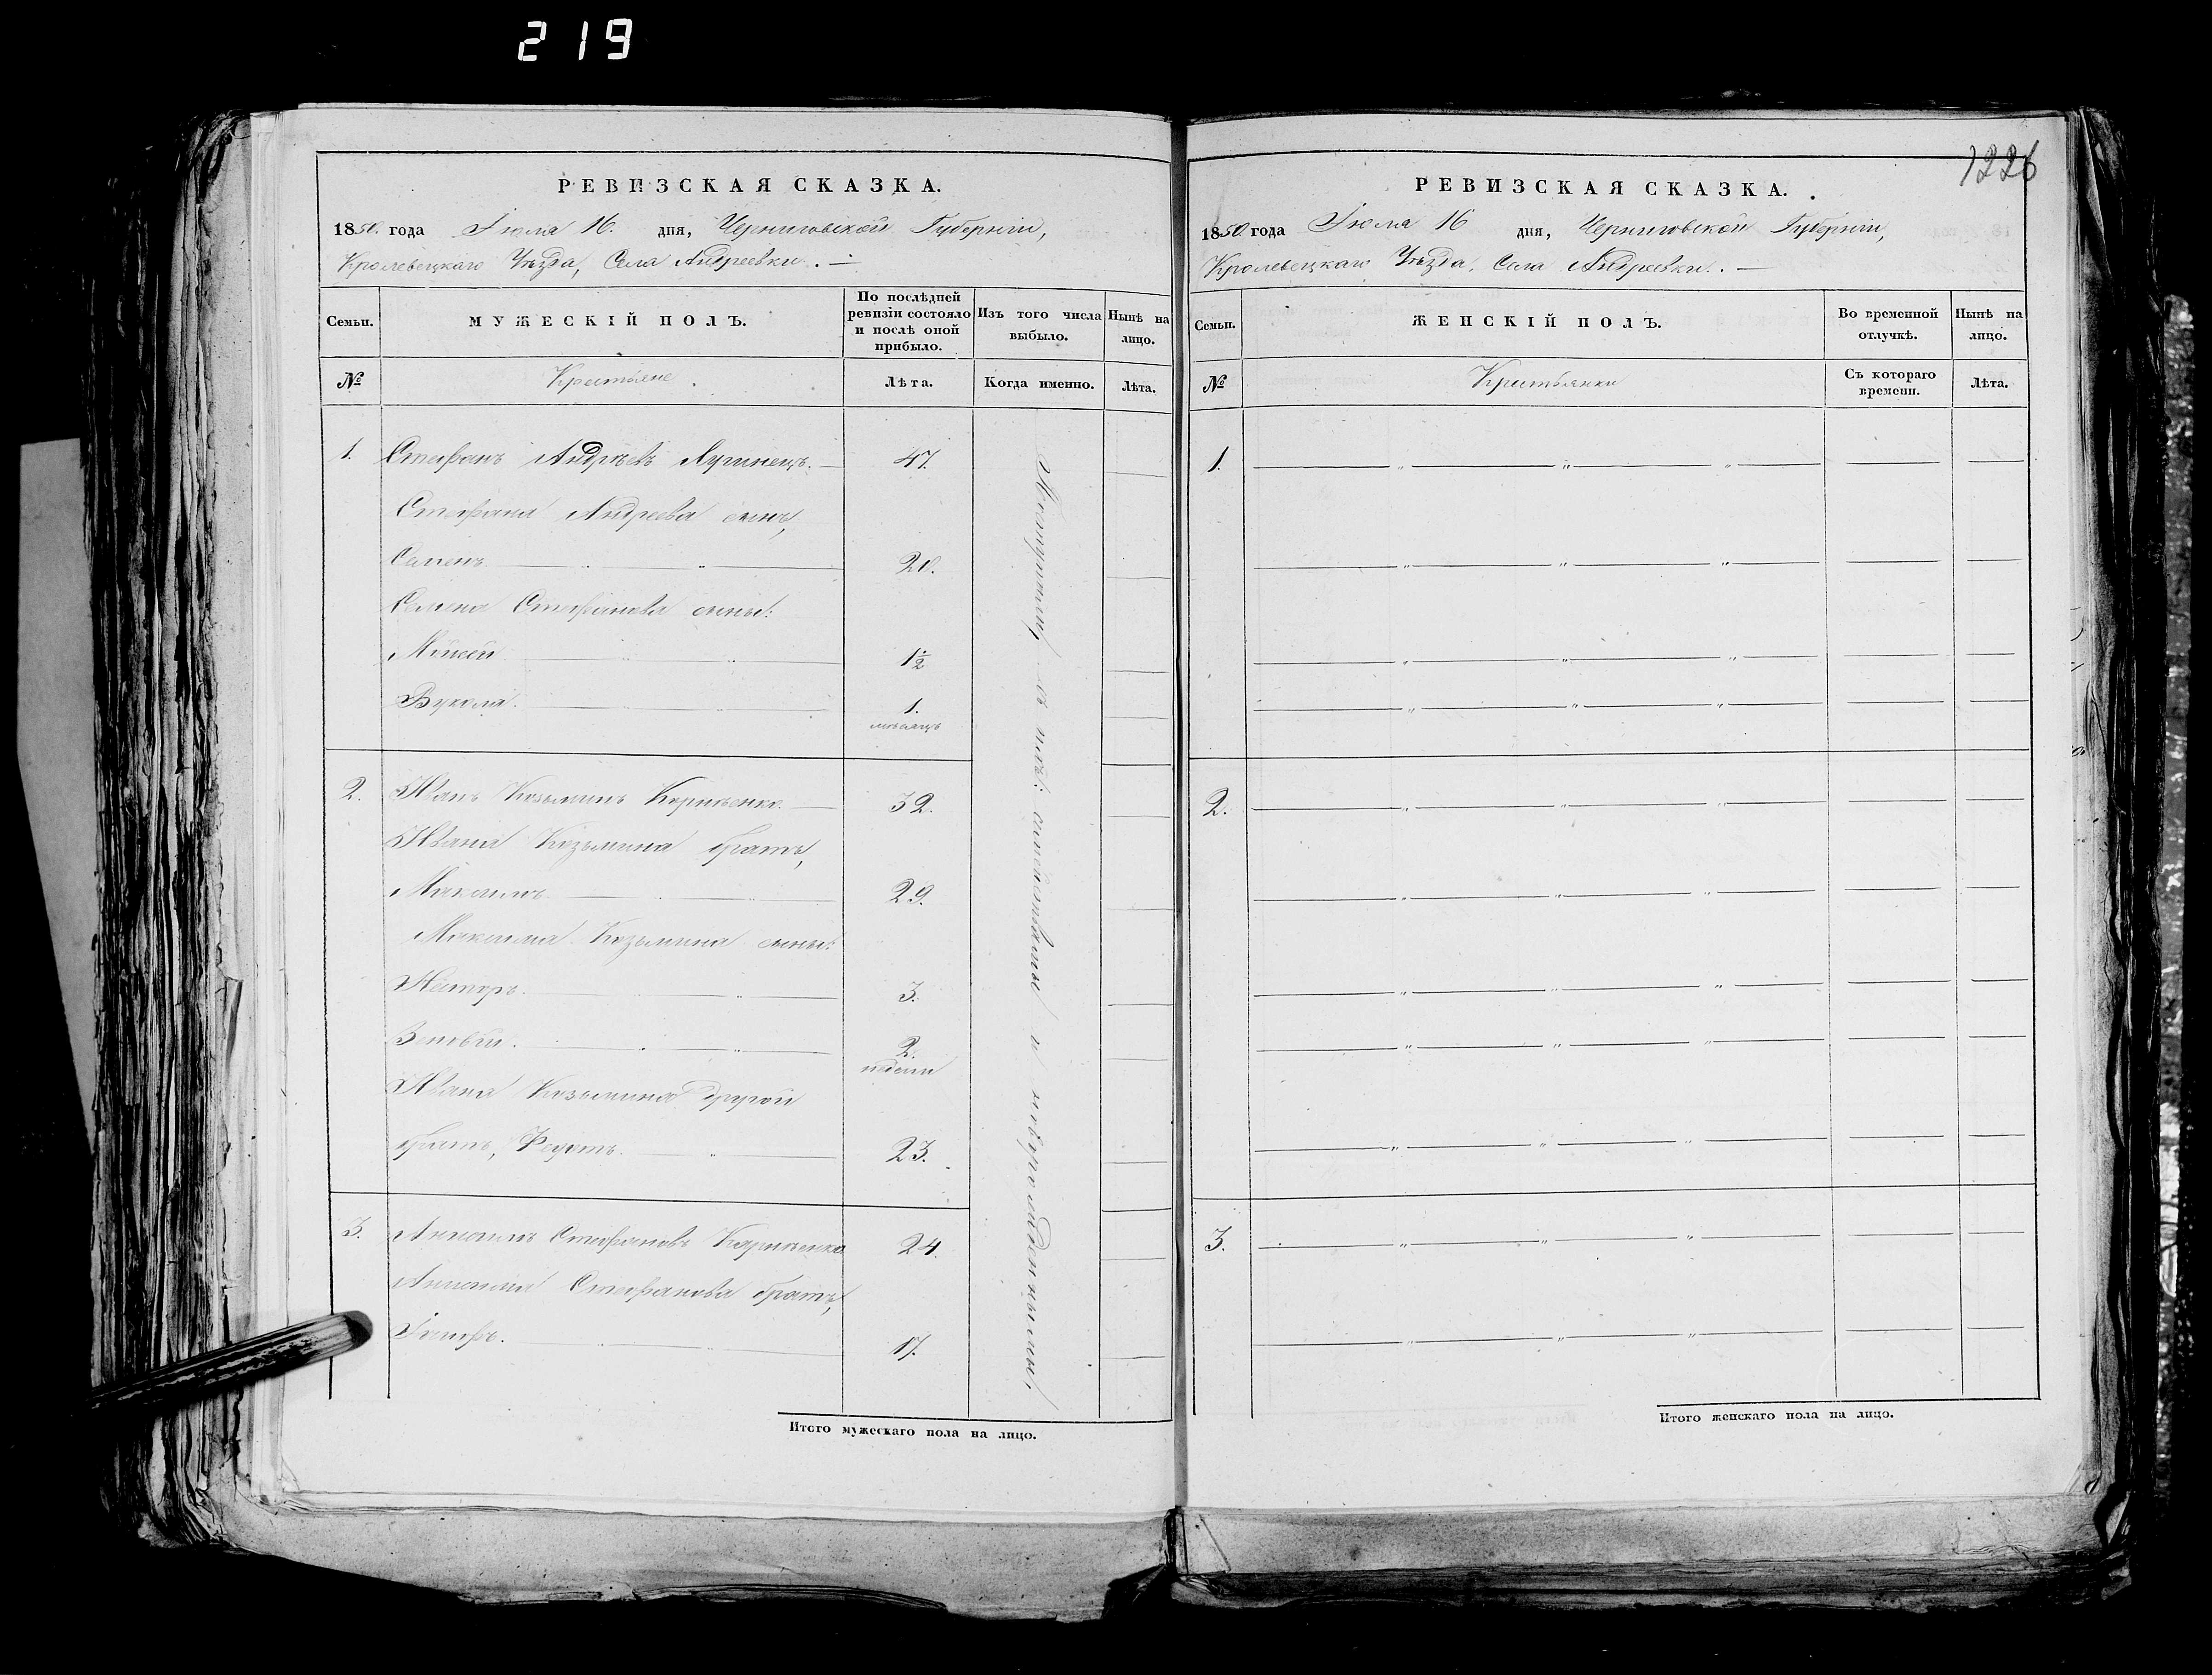 219
РЕВИЗСКАЯ СКАЗКА.
1850. года Іюля 16. дня, Черниговской Губерніи,
Кролевецкаго Уѣзда, Села Андреевки. —
Семьи.
МУЖЕСКІЙ ПОЛЪ.
По послѣдней ревизіи состояло и послѣ оной прибыло.
Изъ того числа выбыло.
Нынѣ на лицо.
№
Крестьяне.
Лѣта.
Когда именно.
Лѣта.
1. Стефанъ Андреевъ 47.
Стефана Андреева сынъ,
Семенъ 20.
Семена Стефанова сыны:
Мокей 1½
Вукола. 1. мѣсяцъ
2. Иванъ Козьминъ 32.
Ивана Козьмина братъ,
Максимъ. 29.
Максима Козьмина сыны:
Несторъ. 3.
Зеновій. 2. недели
Ивана Козьмина другой
братъ, Федотъ. 23.
3. Анисимъ Стефановъ 24.
Анисима Стефанова братъ,
Іосифъ. 17.
и новорожденными.
Итого мужескаго пола на лицо.
1226
РЕВИЗСКАЯ СКАЗКА.
1850. года Іюля 16 дня, Черниговской Губерніи,
Кролевецкаго Уѣзда, Села Андреевки. —
Семьи.
ЖЕНСКІЙ ПОЛЪ.
Во временной отлучкѣ.
Нынѣ на лицо.
№
Крестьянки
Съ котораго времени.
Лѣта.
1.
2.
3.
Итого женскаго пола на лицо.